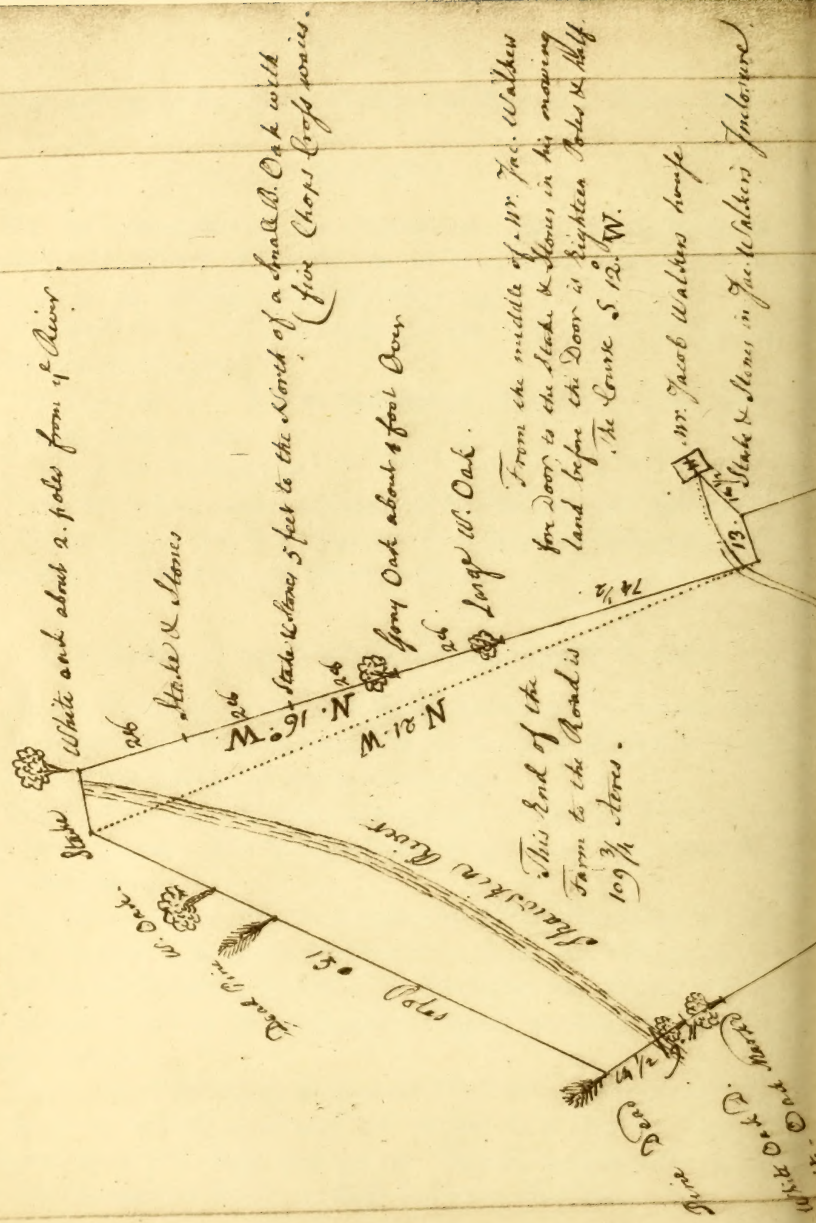 White oak about 2. poles from yᵉ River.
26
Stake & Stones
26
Stake & Stones 5 feet to the North of a Small W. Oak with
(five Chops Cross waies.
26
Gray Oak about 1 foot Over
26
Large W. Oak.
From the middle of Mr. Jac. Walkers
fore Door to the Stake & Stones in his mowing
land before the Door is Eighteen Poles & half.
The Course S. 12.° W.
Mr. Jacob Walkers house
Stake & Stones in Jac. Walkers Inclosure
13.
74 1/2
N. 16° W
N. 21 W
This End of the
Farm to the Road is
109 3/4 Acres.
Shawshen River
Stake
W. Oak.
Dead Pine
150
Poles
Dead
Pine
White Oak D.
Oak Marked